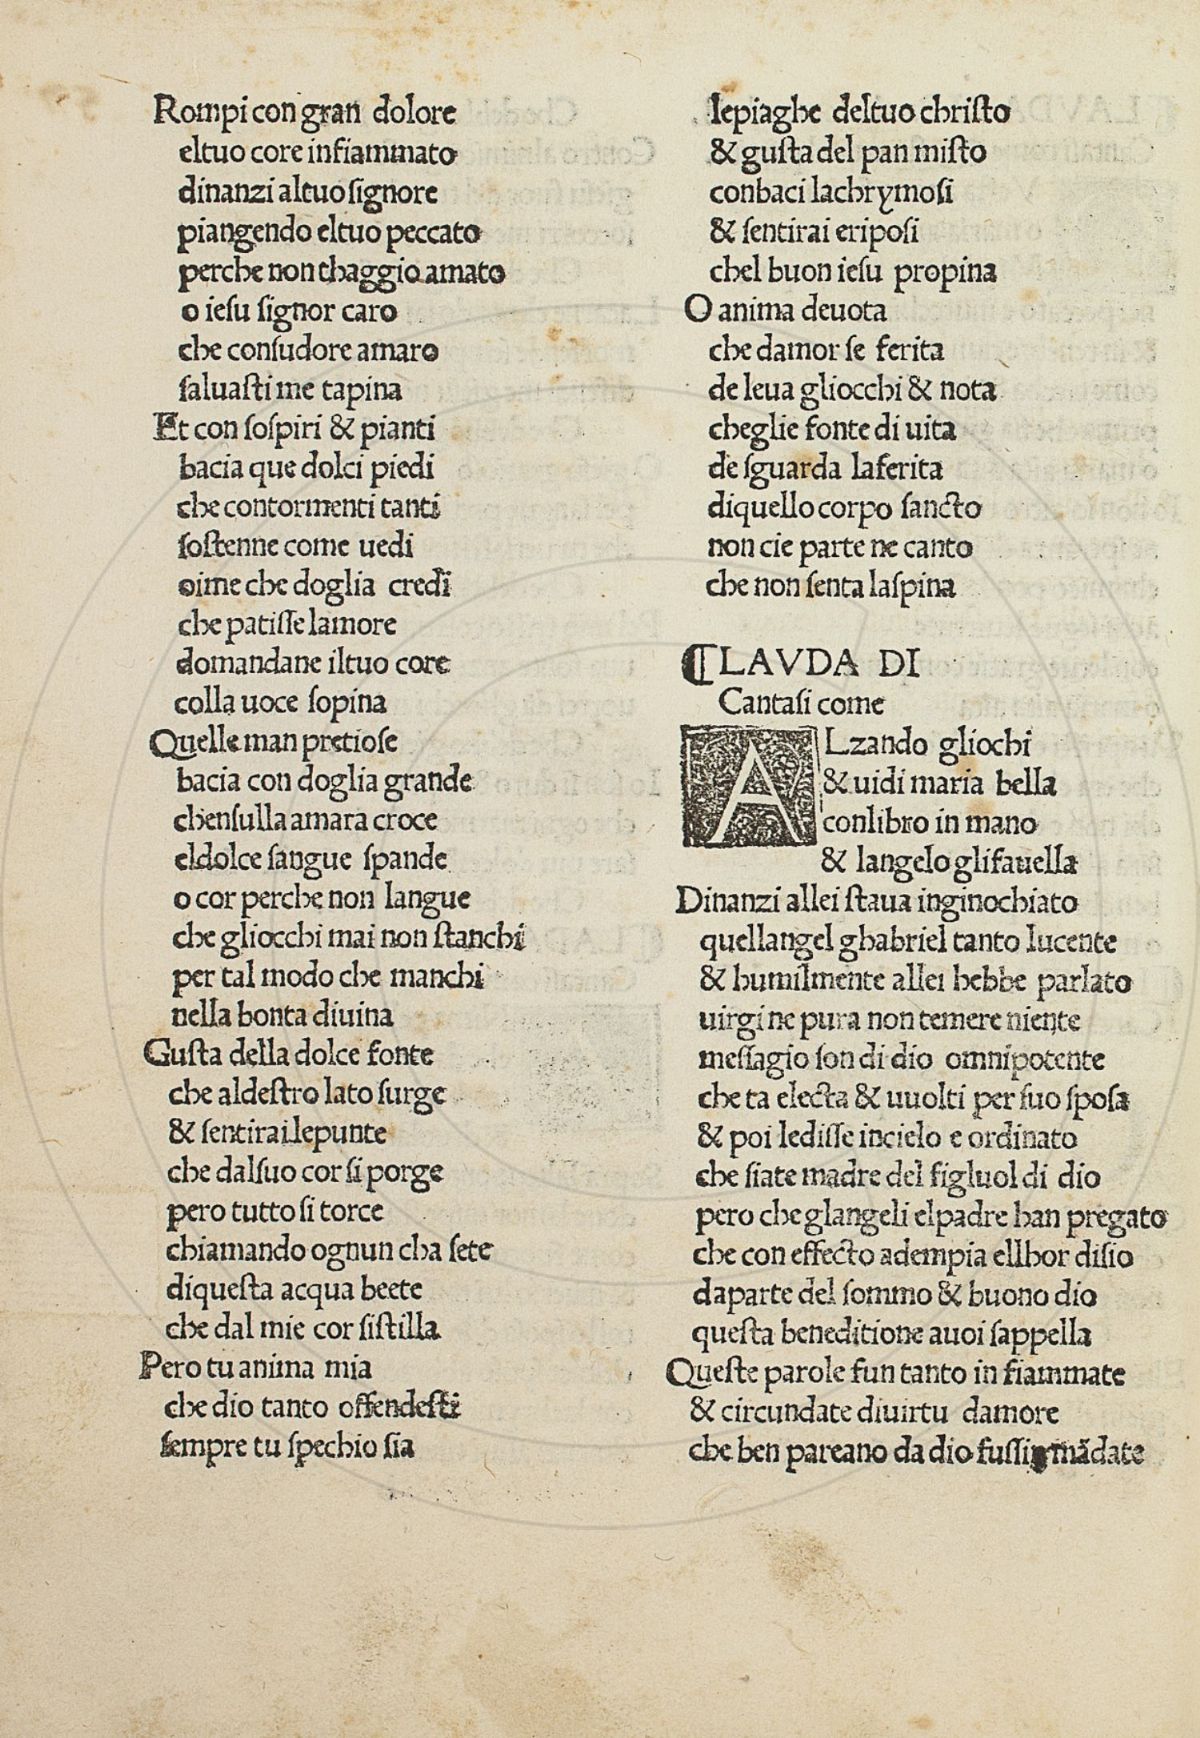 Rompi con gran dolore
eltuo core infiammato
dinanzi altuo signore
piangendo eltuo peccato
perche non thaggio amato
o iesu signor caro
che consudore amaro
saluasti me tapina
Et con sospiri & pianti
bacia que dolci piedi
che contormenti tanti
sostenne come uedi
oime che doglia credi
che patisse lamore
domandane iltuo core
colla uoce sopina
Quelle man pretiose
bacia con doglia grande
chensulla amara croce
eldolce sangue spande
o cor perche non langue
che gliocchi mai non stanchi
per tal modo che manchi
nella bonta diuina
Gusta della dolce fonte
che aldestro lato surge
& sentirai lepunte
che dalsuo cor si porge
pero tutto si torce
chiamando ognun cha sete
diquesta acqua beete
che dal mie cor sistilla
Pero tu anima mia
che dio tanto offendesti
sempre tu spechio sia
lepiaghe deltuo christo
& gusta del pan misto
conbaci lachrymosi
& sentirai eriposi
chel buon iesu propina
O anima deuota
che damor se ferita
de leua gliocchi & nota
cheglie fonte di uita
de sguarda laferita
diquello corpo sancto
non cie parte ne canto
che non senta laspina
¶LAVDA DI
Cantasi come
ALzando gliochi
& uidi maria bella
conlibro in mano
& langelo glifauella
Dinanzi allei staua inginochiato
quellangel ghabriel tanto lucente
& humilmente allei hebbe parlato
uirgine pura non temere niente
messagio son di dio omnipotente
che ta electa & uuolti per suo sposa
& poi ledisse incielo e ordinato
che siate madre del figluol di dio
pero che glangeli elpadre han pregato
che con effecto adempia ellhor disio
daparte del sommo & buono dio
questa beneditione auoi sappella
Queste parole fun tanto in fiammate
& circundate diuirtu damore
che ben pareano da dio fussin mādate